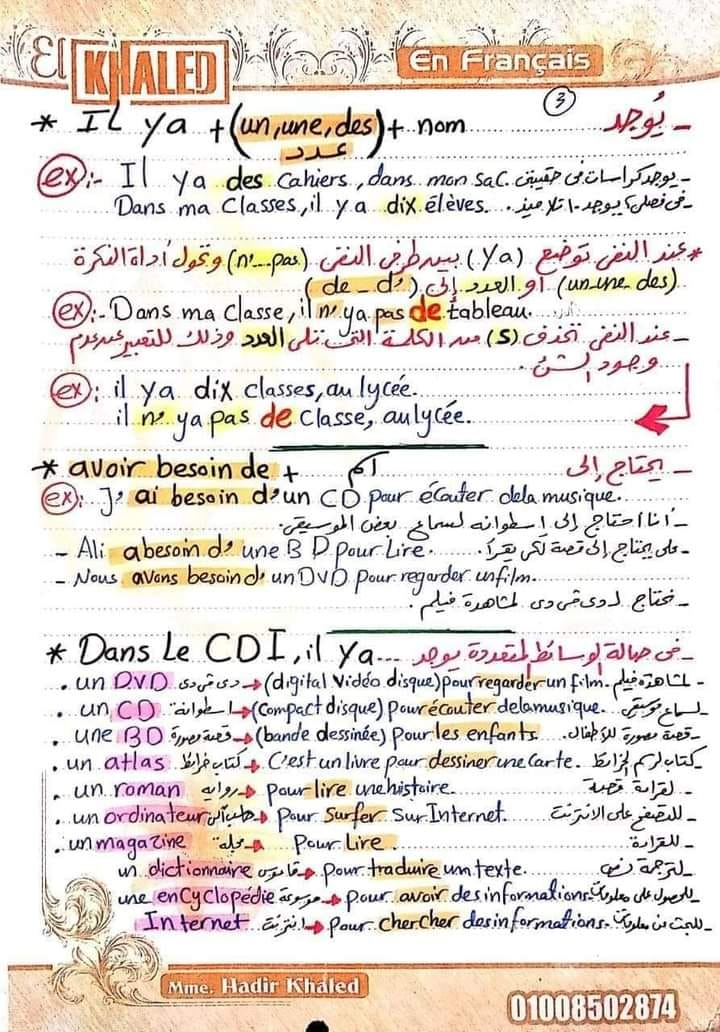 El KHALED
En Français
3
* Il ya + (un, une, des) + nom - يُوجد
عدد
ex:- Il ya des Cahiers, dans mon sac. - يوجد كراسات فى حقيبتى
Dans ma Classes, il ya dix élèves. - فى فصلى يوجد ١٠ تلاميذ.
* عند النفى توضع (ya) بين طرفى النفى (n'...pas) وتحول أداة النكرة
(un-une-des) أو العدد إلى (de - d')
ex:- Dans ma Classe, il n'ya pas de tableau.
- عند النفى تحذف (s) من الكلمة التى تلى العدد وذلك للتعبير عن عدم
وجود الشئ.
ex: il ya dix classes, au lycée.
il n'ya pas de classe, au lycée.
* avoir besoin de + اسم - يحتاج إلى
ex: J'ai besoin d'un CD pour écouter dela musique.
- أنا أحتاج إلى اسطوانه لسماع بعض الموسيقى.
- Ali a besoin d'une BD pour Lire. - على يحتاج إلى قصة لكى يقرأ.
- Nous avons besoin d'un DVD pour regarder un film.
- نحتاج لـ دى فى دى لمشاهدة فيلم.
* Dans Le CDI, il ya... - فى صالة الوسائط المتعددة يوجد
. un DVD دى فى دى → (digital Vidéo disque) pour regarder un film. - لمشاهدة فيلم
. un CD اسطوانة → (Compact disque) pour écouter dela musique. لسماع موسيقى
. une BD قصة مصورة → (bande dessinée) pour les enfants. قصة مصورة للأطفال.
. un atlas كتاب خرائط → C'est un livre pour dessiner une carte. كتاب لرسم الخرائط.
. un roman روايه → pour lire une histoire. لقراءة قصة
. un ordinateur → pour Surfer sur Internet. للتصفح على الانترنت
. un magazine مجلة → Pour Lire. للقراءة
un dictionnaire قاموس → pour traduire um texte. لترجمة نص.
une enCyclopédie موسوعة → pour avoir des informations. للحصول على معلومات
Internet انترنت → pour chercher des informations. - للبحث عن معلومات
Mme. Hadir Khaled
01008502874